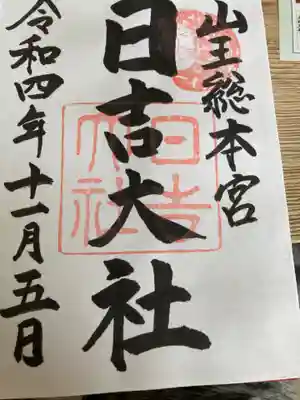 山王総本宮
日吉大社
令和四年十一月五日
日吉大社